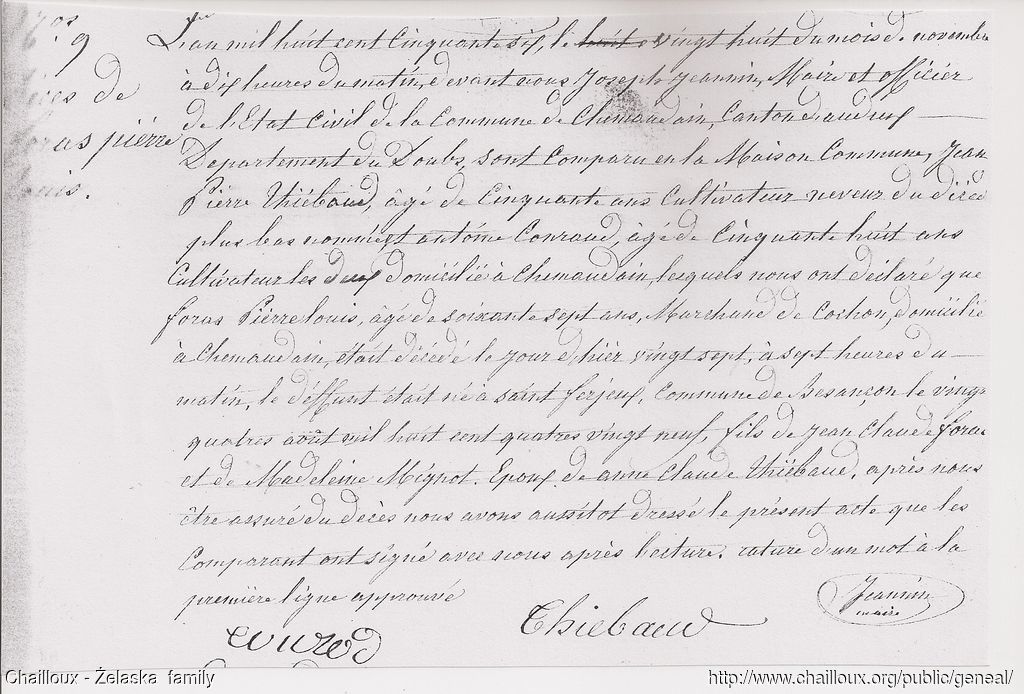 9
de
as pierre
L'an mil huit cent cinquante six, le huit vingt huit du mois de novembre
à dix heures du matin, devant nous Joseph Jeannin, Maire et officier
de l'Etat Civil de la Commune de Chemaudain, Canton d'audeux
Departement du Doubs, sont Comparu en la Maison Commune, Jean
Pierre Thiébaud, âgé de Cinquante ans Cultivateur neveux du décédé
plus bas nommé, et antoine Conraud, agé de Cinquante huit ans
Cultivateur les deux domicilié à Chemaudain, lesquels nous ont déclaré que
foras Pierre louis, âgé de soixante sept ans, Marchand de Cochon, domicilié
à Chemaudain, était décédé le jour d'hier vingt sept, à sept heures du
matin, le déffunt était né à saint ferjeux, Commune de Besançon le vingt
quatres août mil huit cent quatres vingt neuf, fils de Jean Claude foras
et de Madeleine Mignot. Epoux de anne Claude Thiébaud, après nous
être assuré du décès nous avons aussitot dressé le présent acte que les
Comparant ont signé avec nous après lecture. rature d'un mot à la
première ligne approuvé
Jeannin
maire
Thiebaud
Chailloux - Želaska family
http://www.chailloux.org/public/geneal/